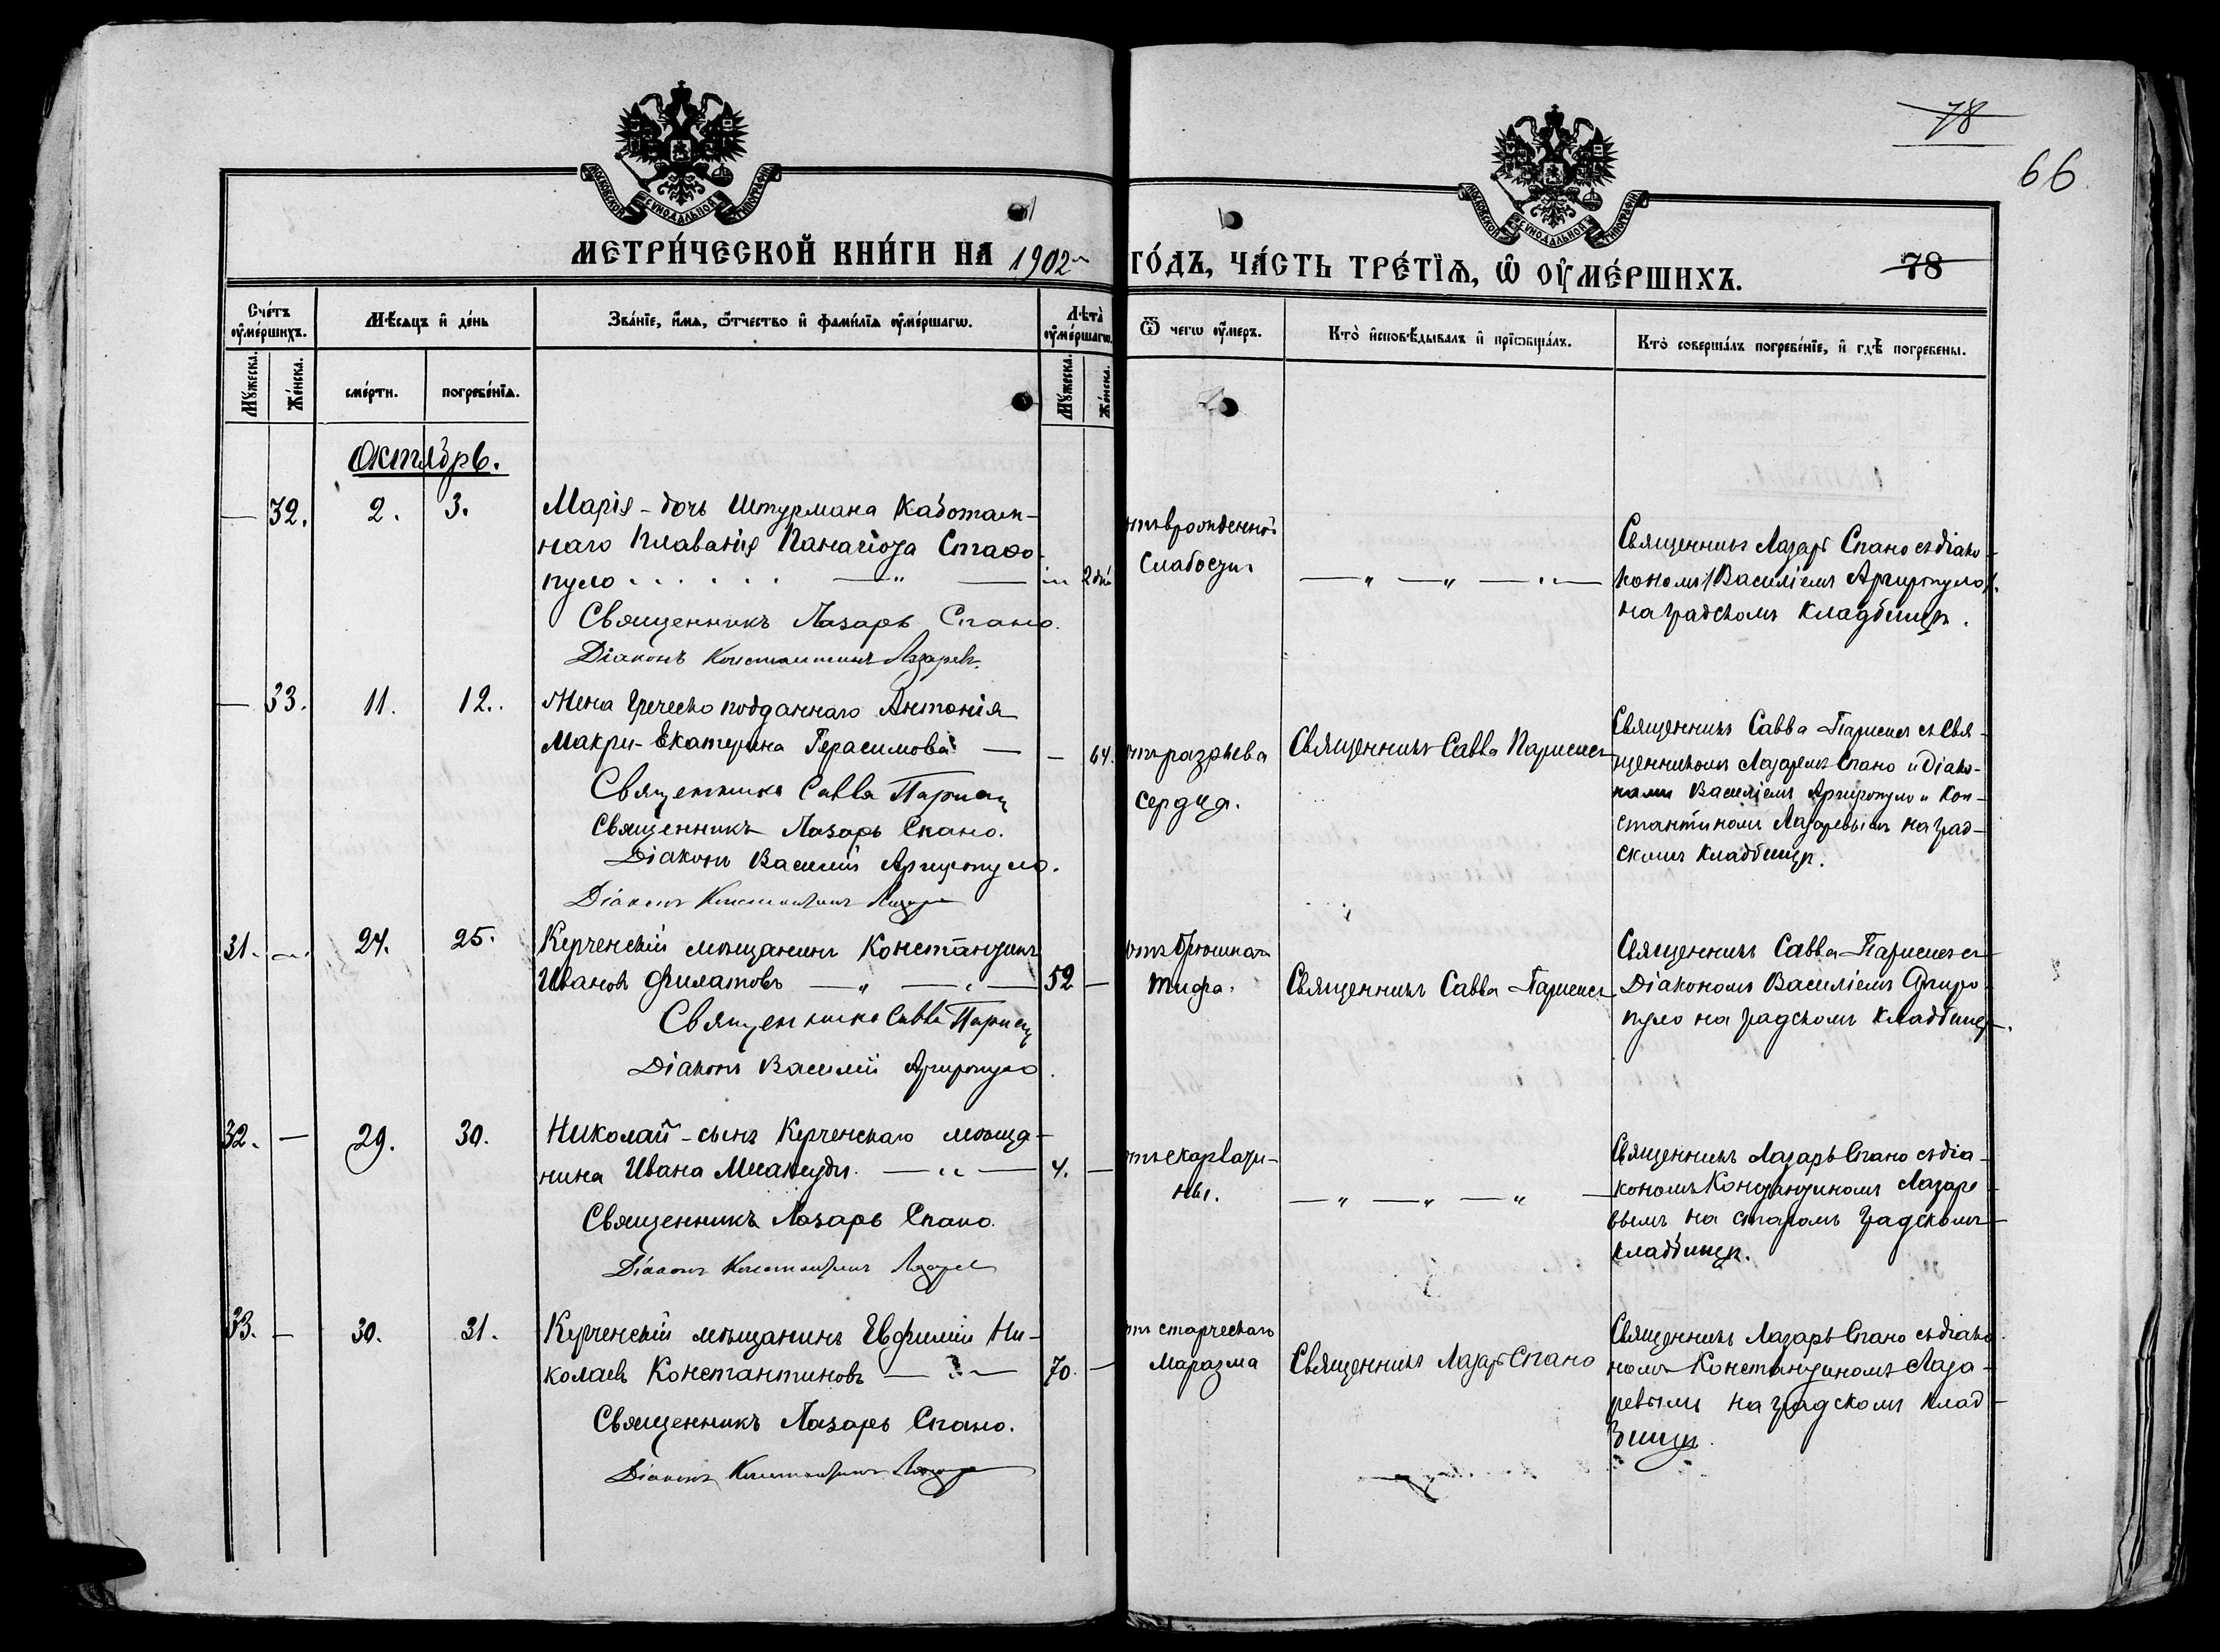 78
66
МОСКОВСКОЙ СѴНОДАЛЬНОЙ ТИПОГРАФІИ
МОСКОВСКОЙ СѴНОДАЛЬНОЙ ТИПОГРАФІИ
МЕТРИ́ЧЕСКОЙ КНИ́ГИ НА 1902
ГО́ДЪ, ЧА́СТЬ ТРЕ́ТІѦ, Ѡ ОУ҆МЕ́РШИХЪ.
78
Сче́тъ оу҆ме́ршихъ.
Мѣ́сяцъ и҆ де́нь
Зва́нїе, и҆́мѧ, ѻ҆́тчество и҆ фами́лїѧ оу҆ме́ршагѡ.
Лѣта̀ оу҆ме́ршагѡ.
Ѿ чегѡ̀ оу҆́меръ.
Кто̀ и҆сповѣ́дывалъ и҆ прїѡбща́лъ.
Кто̀ соверша́лъ погребе́нїе, и҆ гдѣ̀ погребены̀.
Мꙋ́жеска. Же́нска.
сме́рти. погребе́нїѧ.
Мꙋ́жеска. Же́нска.
Октябрь.
— 32. 2. 3. Марія - дочь Штурмана Каботаж-
наго Плаванія Панагіота Стафо-
пуло . . . . . . — " — 2 дня
Священникъ Лазарь Спано.
Діаконъ Константинъ Лазаревъ.
отъ врожденной
слабости
— " — " — " —
Священникъ Лазарь Спано съ діако-
кономъ Василіемъ Аргиропуло
на градскомъ кладбищѣ.
— 33. 11. 12. Жена Греческо подданнаго Антонія
Макри - Екатерина Герасимова — — 64.
Священникъ Савва Париси
Священникъ Лазарь Спано.
Діаконъ Василій Аргиропуло.
Діаконъ Константинъ Лазарев
отъ разрыва
сердца.
Священникъ Савва
Священникъ Савва съ Свя-
щенникомъ Лазаремъ Спано и Діако-
нами Василіемъ Аргиропуло и Кон-
стантиномъ Лазаревымъ на град-
скомъ кладбищѣ.
31. — 24. 25. Керченскій мѣщанинъ Константинъ
Ивановъ Филатовъ — " — " — 52 —
Священникъ Савва
Діаконъ Василій Аргиропуло.
отъ брюшнаго
тифа.
Священникъ Савва
Священникъ Савва съ
Діакономъ Василіемъ Аргиро-
пуло на градскомъ кладбищѣ.
32. — 29. 30. Николай - сынъ Керченскаго мѣща-
нина Ивана — " — 4. —
Священникъ Лазарь Спано.
Діаконъ Константинъ Лазарев
отъ скарлати-
ны.
— " — " — " —
Священникъ Лазарь Спано съ діа-
кономъ Константиномъ Лазаре-
вымъ на старомъ градскомъ
кладбищѣ.
33. — 30. 31. Керченскій мѣщанинъ Евфимій Ни-
колаевъ Константиновъ — " — 70. —
Священникъ Лазарь Спано.
Діаконъ Константинъ Лазарев
отъ старческаго
маразма
Священникъ Лазарь Спано
Священникъ Лазарь Спано съ діако-
номъ Константиномъ Лаза-
ревымъ на градскомъ клад-
бищѣ.